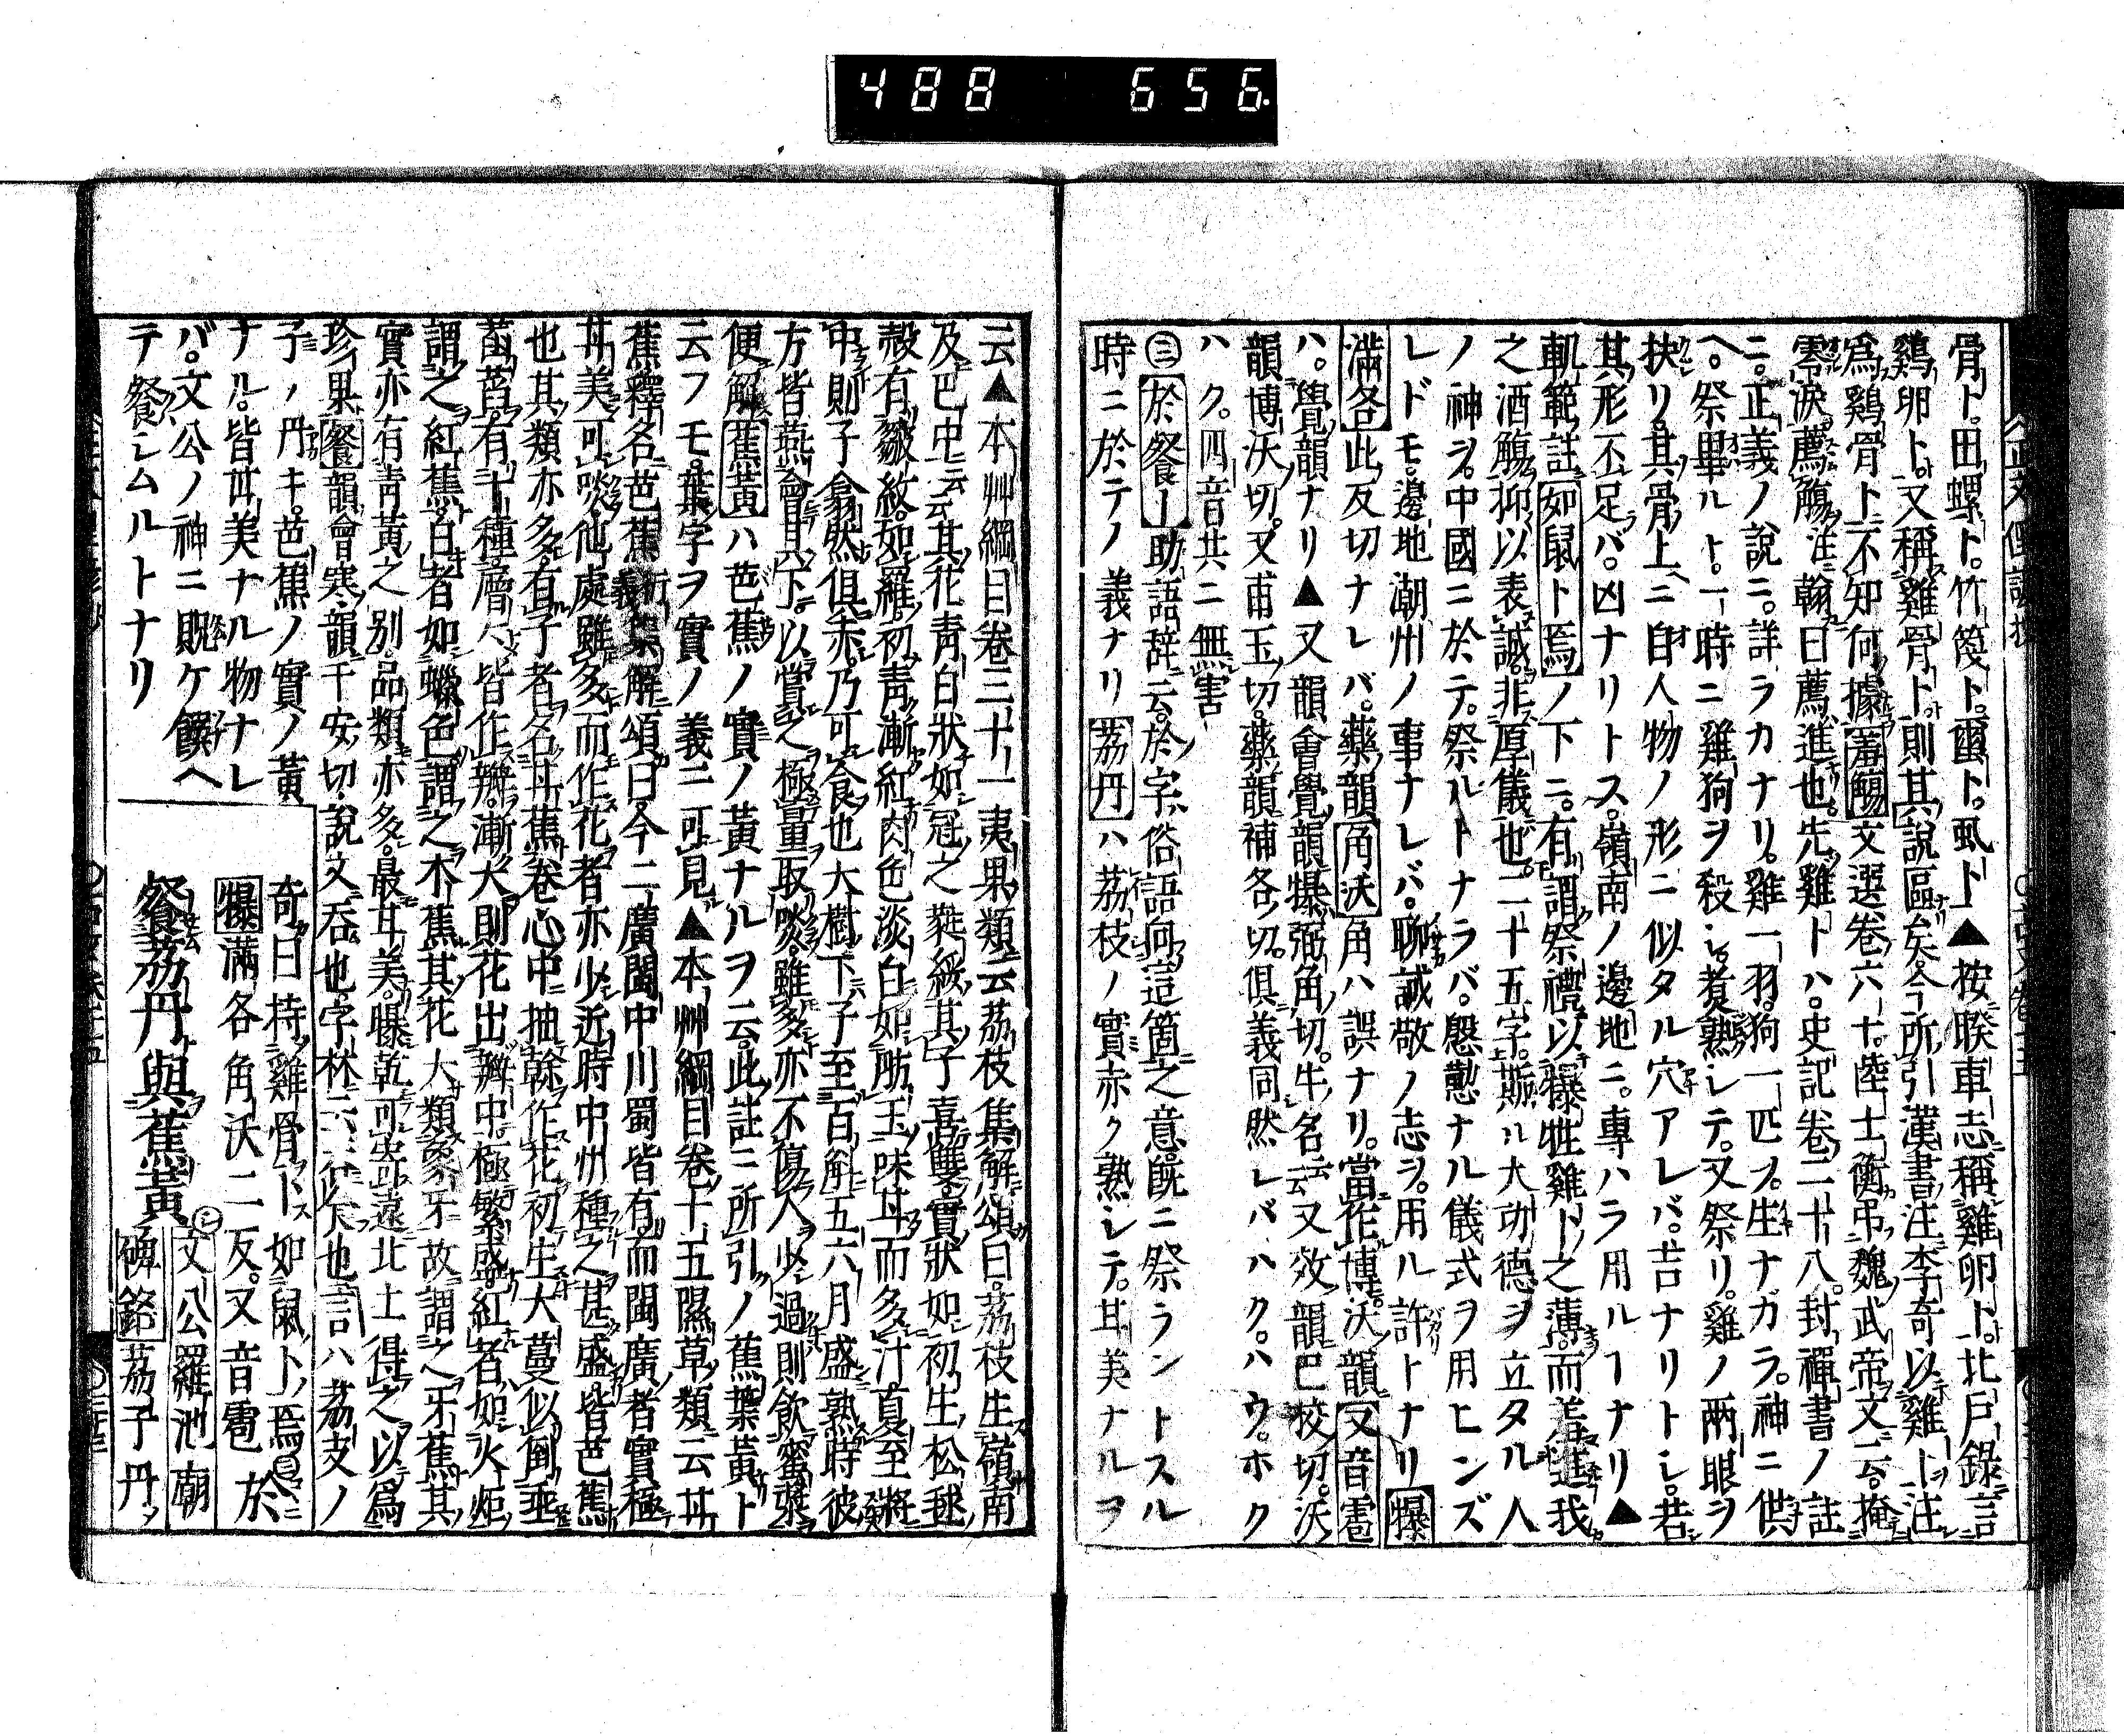 488 656.
骨ト。田螺ト。竹筊ト。䖝ト。虱ト▲按睽車志稱雞卵ト。北戸錄言
鷄卵ト。又稱雞骨ト。則其說區矣。今所引漢書注李奇以雞ト注
爲鷄骨ト不知何據羞觴文選卷六十。陸士衡吊魏武帝文云。掩
零淚薦觴注翰曰薦進也。先雞トハ。史記卷二十八。封禪書ノ註
ニ。正義ノ說ニ。詳ラカナリ。雞一羽。狗一匹ヲ。生ナガラ。神ニ供
ヘ。祭畢ルト。一時ニ雞狗ヲ殺シ。煑熟シテ。又祭リ。雞ノ兩眼ヲ
抉リ。其骨上ニ自人物ノ形ニ似タル穴アレバ。吉ナリトシ。若
其形不足バ。凶ナリトス。嶺南ノ邊地ニ。專ハラ用ルヿナリ▲
軌範註如鼠ト焉ノ下ニ。有謂祭禮以犦牲雞ト之薄。而羞進我
之酒觴抑以表誠。非厚儀也。二十五字。斯ル大功德ヲ立タル人
ノ神ヲ。中國ニ於テ。祭ルトナラバ。慇懃ナル儀式ヲ用ヒンズ
レドモ。邊地潮州ノ事ナレバ。聊誠敬ノ志ヲ。用ル許トナリ犦
滿各此反切ナレバ。藥韻角沃角ハ誤ナリ。當作博。沃韻又音雹
ハ。覺韻ナリ▲又韻會覺韻犦弼角切。牛名云又效韻巴校切。沃
韻博沃切。又甫玉切。藥韻補各切。俱義同然レバハク。ハウ。ホク
ハク。四音共ニ無害
㊂於餐ー助語辞云。於字俗語向這箇之意。既ニ祭ラントスル
時ニ於テノ義ナリ荔丹ハ荔枝ノ實赤ク熟シテ。甘美ナルヲ
云▲本艸綱目卷三十一夷果類云荔枝集解頌曰。荔枝生嶺南
及巴中云其花青白狀如冠之蕤緌其子喜雙實狀如初生松毬
殼有皺紋如羅。初青漸紅肉色淡白如肪玉味甘而多汁夏至將
中則子翕然俱赤。乃可食也大樹下子至百斛五六月盛熟時彼
方皆燕會其下。以賞之極量取啖。雖多亦不傷人少過則飲蜜漿
便解蕉黃ハ芭蕉ノ實ノ黃ナルヲ云。此註ニ所引ノ蕉葉黃ト
云フモ。葉字ヲ實ノ義ニ可見▲本艸綱目卷十五隰草類云甘
蕉釋名芭蕉衍義集解頌曰今二廣閩中川蜀皆有而閩廣者實極
甘美可啖。他處雖多而作花者亦少近時中州種之甚盛皆芭蕉
也其類亦多有子者名甘蕉卷心中抽幹作花初生大蕚似倒垂
菡萏有十種層々皆作瓣漸大則花出瓣中極繁盛紅者如火炬
謂之紅蕉白者如蠟色謂之水蕉其花大類象牙故謂之牙蕉其
實亦有青黃之別。品類亦多。最甘美。曝乾可寄遠北土得之以爲
珍果餐韻會寒韻千安切說文吞也字林云 也言ハ荔支ノ
子ノ丹キ。芭蕉ノ實ノ黃
ナル。皆甘美ナル物ナレ
バ。文公ノ神ニ貺ケ饌ヘ
テ餐シムルトナリ
奇曰持雞骨ト如鼠ト焉㊂於
犦滿各角沃二反。又音雹於
餐荔丹與蕉黃
文公羅池廟
碑銘荔子丹